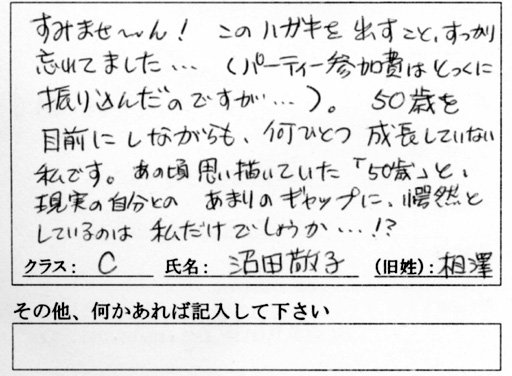 すみませ〜ん！ このハガキを出すこと、すっかり
忘れてました…（パーティー参加費はとっくに
振り込んだのですが…）。 50歳を
目前にしながらも、何ひとつ成長していない
私です。あの頃思い描いていた「50歳」と、
現実の自分との あまりのギャップに、愕然と
しているのは 私だけでしょうか…!?
クラス： C 氏名： 沼田敬子 （旧姓）：相澤
その他、何かあれば記入して下さい